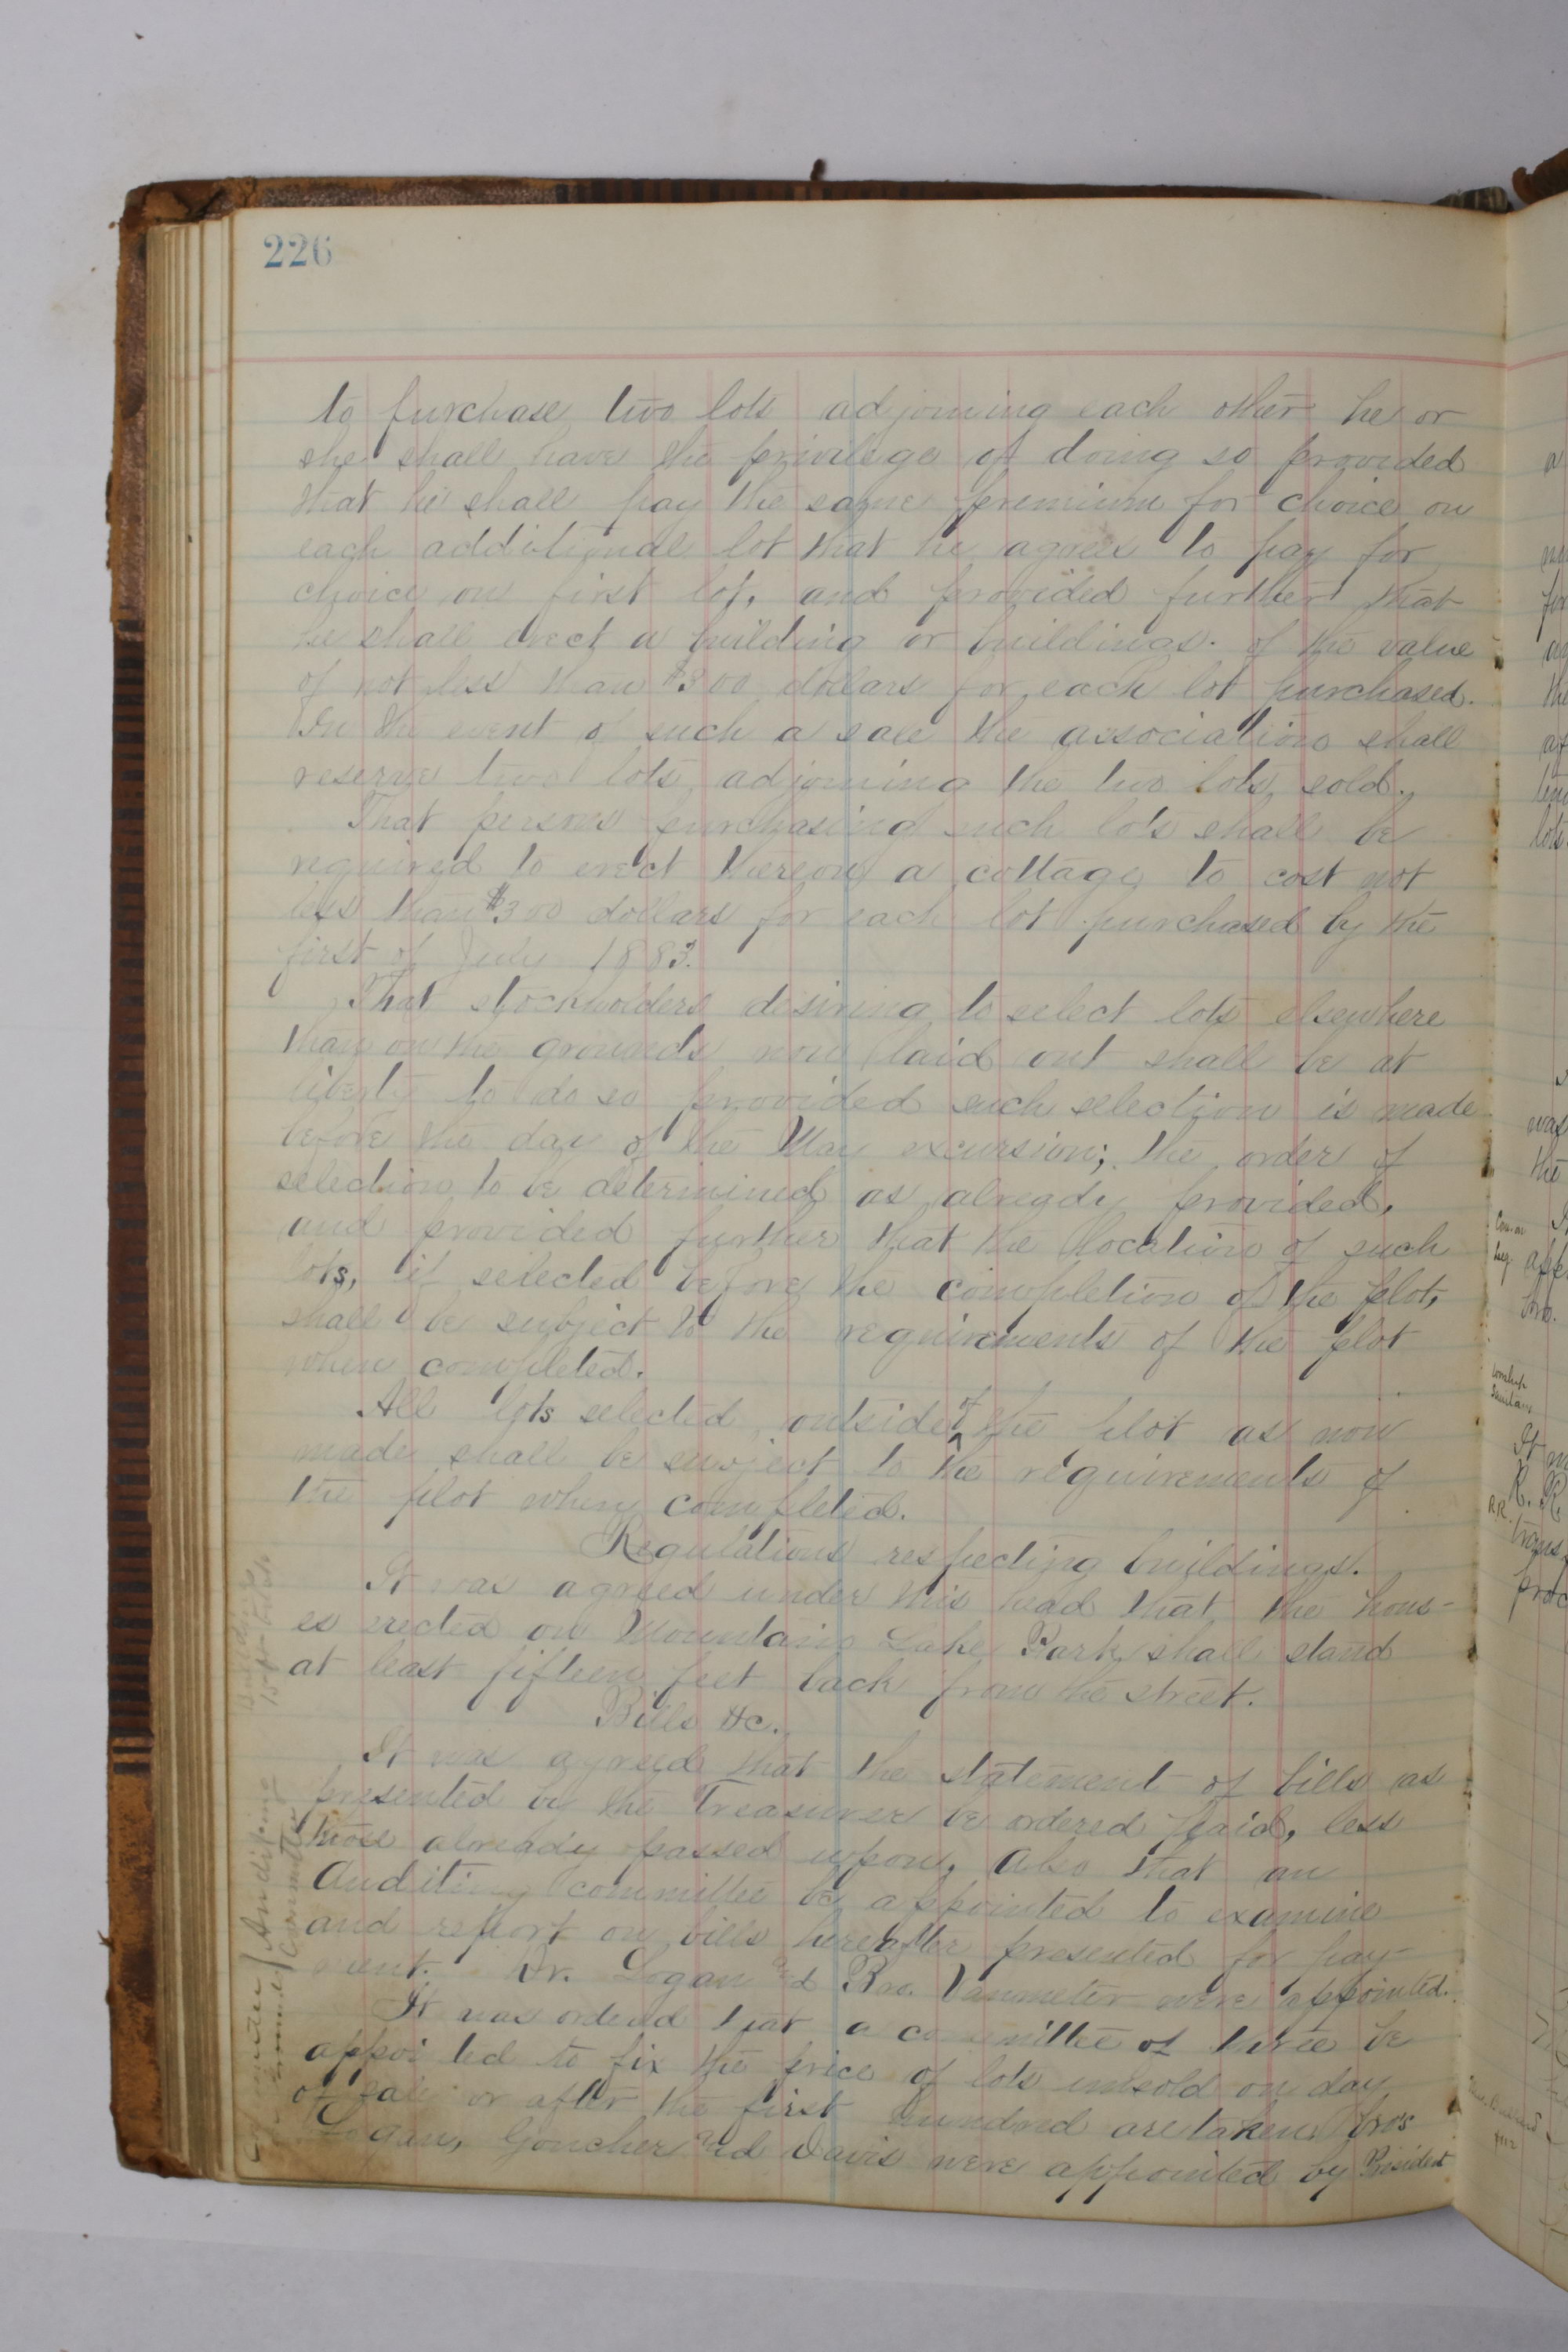 226
to purchase two lots adjoining each other he or
she shall have the privilege of doing so provided
that he shall pay the same premium for choice on
each additional lot that he agrees to pay for
choice on first lot, and provided further that
he shall erect a building or buildings. of the value
of not less than $300 dollars for each lot purchased.
In the event of such a sale the association shall
reserve two lots adjoining the two lots sold.
That persons purchasing such lots shall be
required to erect thereon a cottage to cost not
less than $300 dollars for each lot purchased by the
first of July 1883.
That stockholders desiring to select lots elsewhere
than on the grounds now laid out shall be at
liberty to do so provided such selection is made
before the day of the May excursion; the order of
selection to be determined as already provided,
and provided further that the location of such
lots, if selected before the completion of the plot,
shall be subject to the requirements of the plot
when completed.
All lots selected outside of the plot as now
made shall be subject to the requirements of
the plot when completed.
Regulations respecting buildings.
It was agreed under this head that the hous-
es erected on Mountain Lake Park shall stand
at least fifteen feet back from the street.
Bills &c.
It was agreed that the statement of bills as
presented by the Treasurer be ordered paid, less
those already passed upon, Also that an
Auditing committee be appointed to examine
and report on bills hereafter presented for pay-
ment. Dr. Logan and Bro. Vanmeter were appointed.
It was ordered that a committee of three be
appointed to fix the price of lots unsold on day
of sale or after the first hundred are taken, bros
Logan, Goucher and Davis were appointed by President
Auditing
Committee